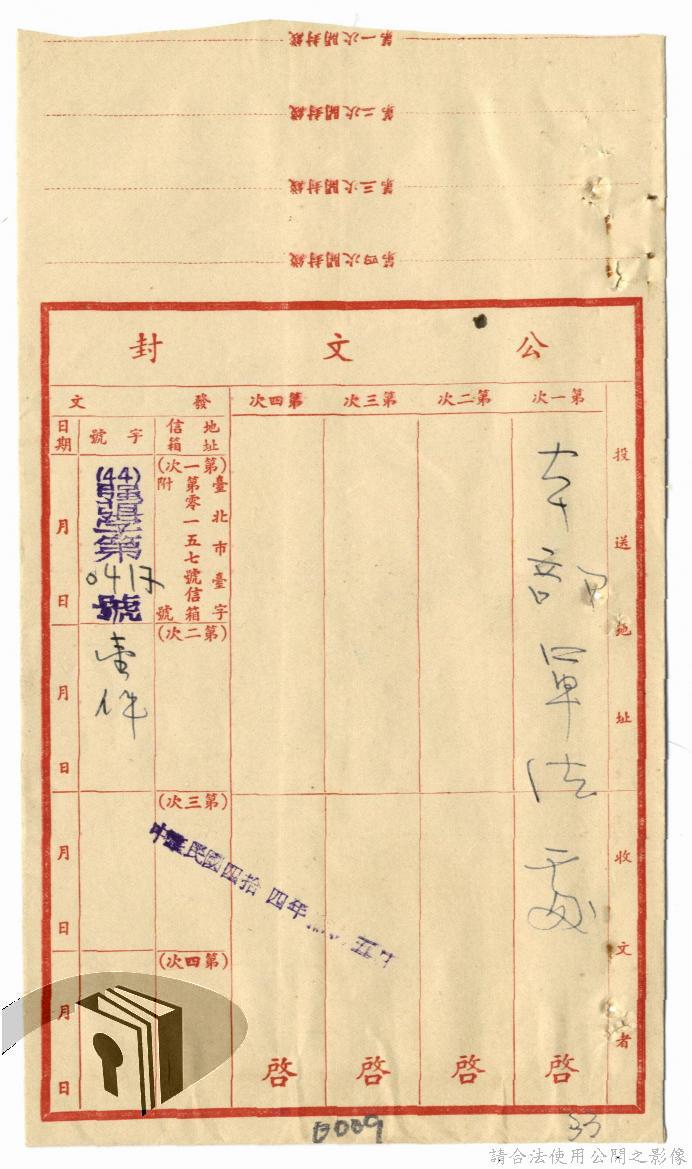 第一次開封綫
第二次開封綫
第三次開封綫
第四次開封綫
公文封
投送地址
收文者
第一次
第二次
第三次
第四次
本部軍法處
啓
啓
啓
啓
發文
地址
信箱
字號
日期
(第一次)
臺北市臺字
第零一五七號信箱
附 號
(44)
第
0417
號
壹件
月 日
(第二次)
月 日
(第三次)
月 日
(第四次)
月 日
中華民國四拾四年
五
0009
33
請合法使用公開之影像